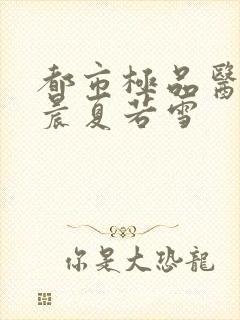 都市極品醫
晨夏若雪
你是大恐龍